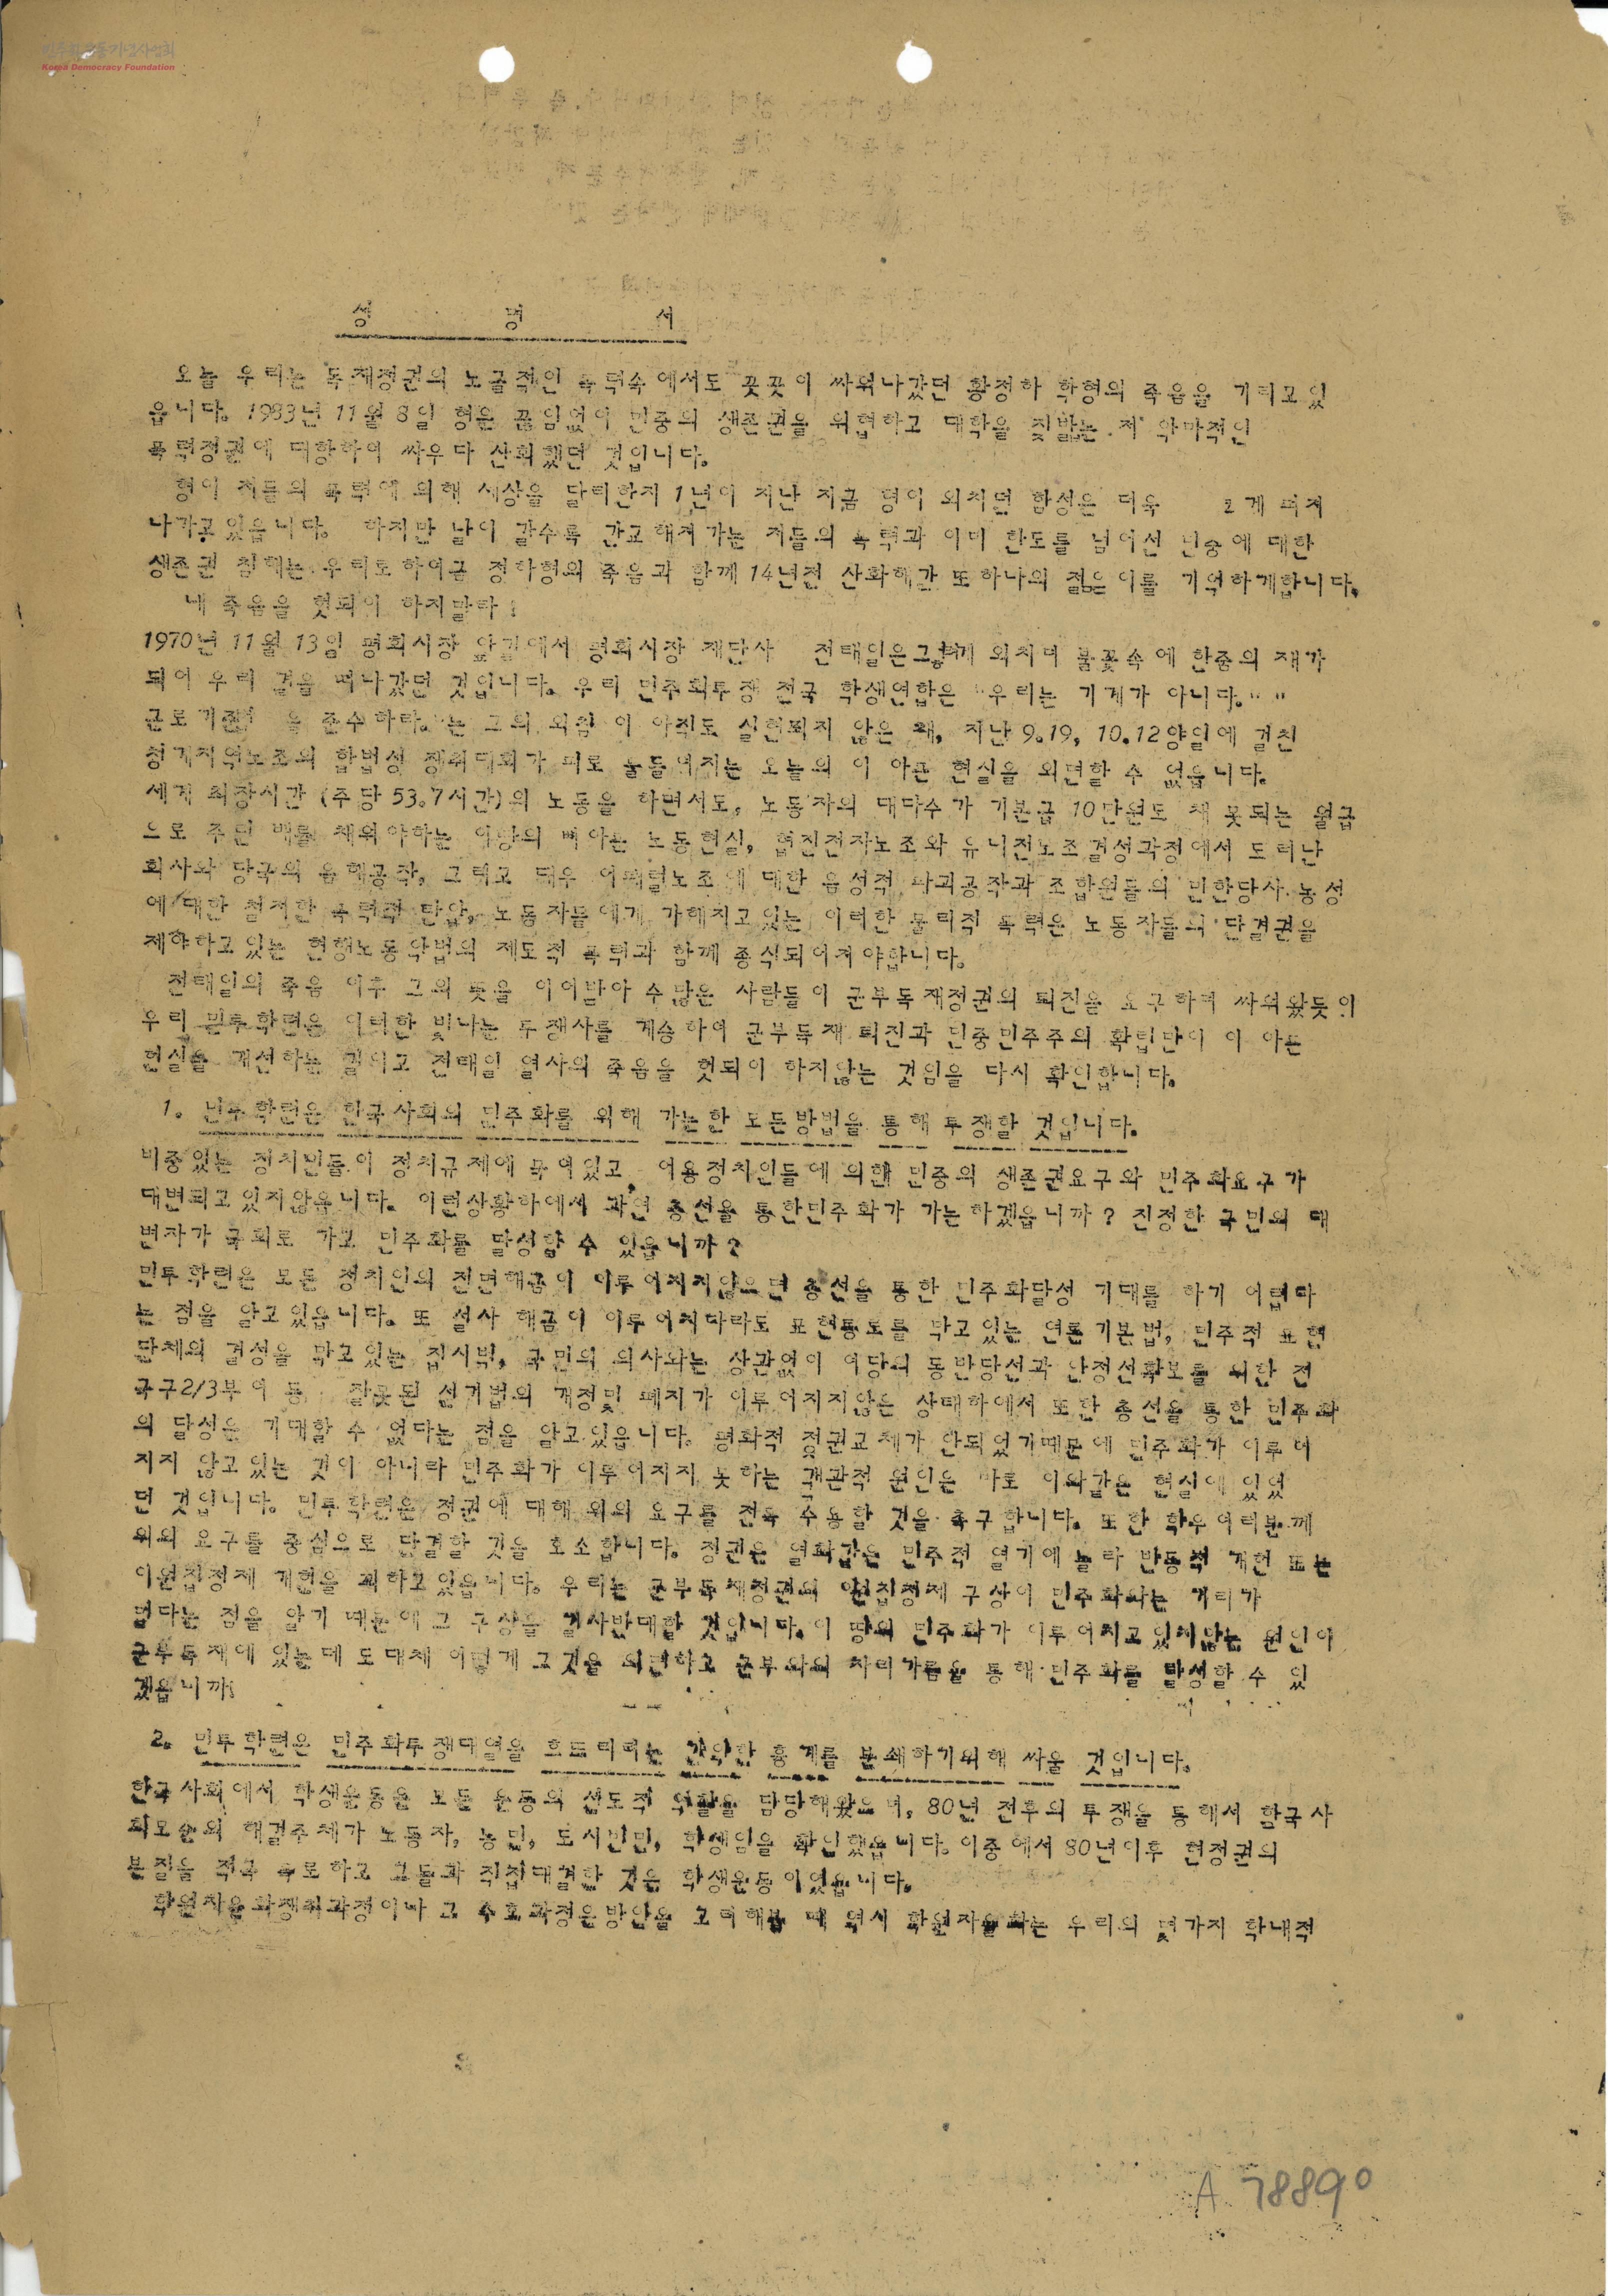 민주화운동기념사업회
Korea Democracy Foundation
성 명 서
오늘 우리는 독재정권의 노골적인 폭력속에서도 꿋꿋이 싸워나갔던 황정하 학형의 죽음을 기리고있
읍니다. 1983년 11월 8일 형은 끊임없이 민중의 생존권을 위협하고 대학을 짓밟는 저 악마적인
폭력정권에 대항하여 싸우다 산화했던 것입니다.
형이 저들의 폭력에 의해 세상을 달리한지 1년이 지난 지금 형이 외치던 함성은 더욱 크게 퍼져
나가고있읍니다. 하지만 날이 갈수록 간교해져가는 저들의 폭력과 이미 한도를 넘어선 민중에 대한
생존권 침해는 우리로하여금 정하형의 죽음과 함께 14년전 산화해간 또하나의 젊은이를 기억하게합니다.
내 죽음을 헛되이 하지말라!
1970년 11월 13일 평화시장 앞길에서 평화시장 재단사 전태일은그렇게 외치며 불꽃속에 한줌의 재가
되어 우리 곁을 떠나갔던 것입니다. 우리 민주화투쟁 전국 학생연합은 "우리는 기계가 아니다." "
근로기준법 을 준수하라."는 그의 외침이 아직도 실현되지 않은 채, 지난 9.19, 10.12양일에 걸친
청계지역노조의 합법성 쟁취대회가 피로 물들여지는 오늘의 이 아픈 현실을 외면할 수 없읍니다.
세계 최장시간 (주당 53.7시간)의 노동을 하면서도, 노동자의 대다수가 기본급 10만원도 채 못되는 월급
으로 주린 배를 채워야하는 이땅의 뼈아픈 노동현실, 협진전자노조와 유니전노조결성과정에서 드러난
회사와 당국의 음해공작, 그리고 대우 어패럴노조에 대한 음성적 파괴공작과 조합원들의 민한당사 농성
에 대한 철저한 폭력적 탄압, 노동자들에게 가해지고있는 이러한 물리적 폭력은 노동자들의 단결권을
제약하고있는 현행노동악법의 제도적 폭력과 함께 종식되어져야합니다.
전태일의 죽음 이후 그의 뜻을 이어받아 수많은 사람들이 군부독재정권의 퇴진을 요구하며 싸워왔듯이
우리 민투학련은 이러한 빛나는 투쟁사를 계승하여 군부독재 퇴진과 민중민주주의 확립만이 이 아픈
현실을 개선하는 길이고 전태일 열사의 죽음을 헛되이 하지않는 것임을 다시 확인합니다.
1. 민투학련은 한국사회의 민주화를 위해 가능한 모든방법을 통해 투쟁할 것입니다.
비중있는 정치인들이 정치규제에 묶여있고 어용정치인들에 의해 민중의 생존권요구와 민주화요구가
대변되고있지않읍니다. 이런상황하에서 과연 총선을 통한민주화가 가능하겠읍니까? 진정한 국민의 대
변자가 국회로 가고 민주화를 달성할 수 있읍니까?
민투학련은 모든 정치인의 전면해금이 이루어지지않으면 총선을 통한 민주화달성 기대를 하기 어렵다
는 점을 알고있읍니다. 또 설사 해금이 이루어지더라도 표현통로를 막고있는 언론기본법, 민주적 표현
단체의 결성을 막고있는 집시법, 국민의 의사와는 상관없이 여당의 동반당선과 안정선확보를 위한 전
국구2/3부여 등 잘못된 선거법의 개정및 폐지가 이루어지지않은 상태하에서 또한 총선을 통한 민주화
의 달성은 기대할 수 없다는 점을 알고있읍니다. 평화적 정권교체가 안되었기때문에 민주화가 이루어
지지 않고있는 것이 아니라 민주화가 이루어지지 못하는 객관적 원인은 바로 이와같은 현실에 있었
던 것입니다. 민투학련은 정권에 대해 위의 요구를 전폭 수용할 것을 촉구합니다. 또한 학우여러분께
위의 요구를 중심으로 단결할 것을 호소합니다. 정권은 열화같은 민주적 열기에 놀라 반동적 개헌 또는
이원집정제 개헌을 꾀하고있읍니다. 우리는 군부독재정권의 이원집정제 구상이 민주화와는 거리가
멀다는 점을 알기 때문에 그 구상을 결사반대할 것입니다. 이 땅의 민주화가 이루어지고있지않는 원인이
군부독재에 있는데 도대체 어떻게 그것을 외면하고 군부와의 자리가름을 통해 민주화를 달성할 수 있
겠읍니까!
2. 민투학련은 민주화투쟁대열을 흐트러뜨리는 간악한 흉계를 분쇄하기위해 싸울 것입니다.
한국사회에서 학생운동은 모든 운동의 선도적 역할을 담당해왔으며, 80년 전후의 투쟁을 통해서 한국사
회모순의 해결주체가 노동자, 농민, 도시빈민, 학생임을 확인했읍니다. 이중에서 80년이후 현정권의
본질을 적극 폭로하고 그들과 직접대결한 것은 학생운동이었읍니다.
학원자율화쟁취과정이나 그 수호과정은방안을 고려해볼 때 역시 학원자율화는 우리의 몇가지 학내적
A 78890